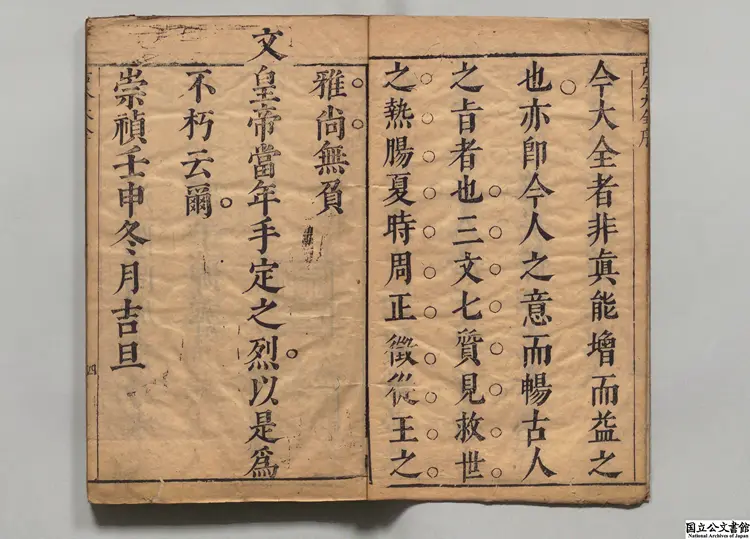 今大全者非眞能增而益之
也亦卽今人之意而暢古人
之旨者也三文七質見救世
之熱腸夏時周正徵從王之
雅尚無負
文皇帝當年手定之烈以是爲
不朽云爾
崇禎壬申冬月吉旦
四
国立公文書館
National Archives of Japan